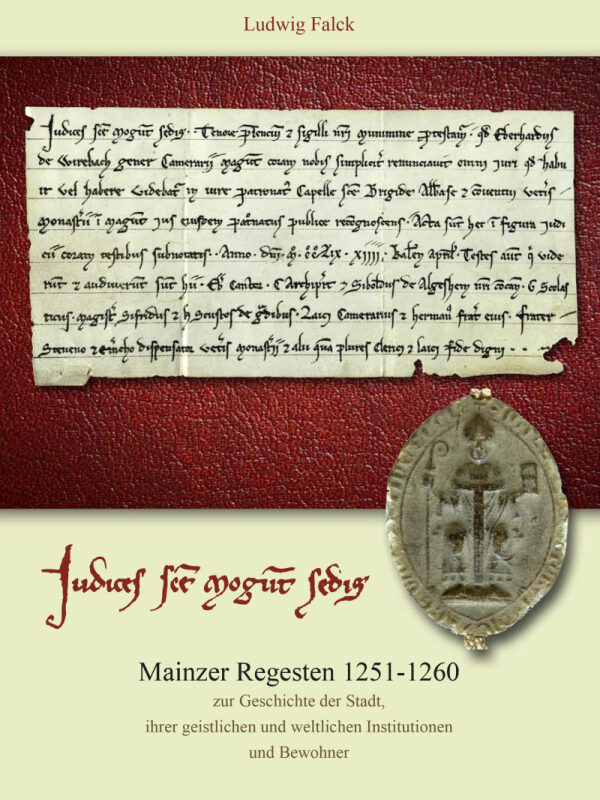 Ludwig Falck
Judices sce mogut sedis. Tenore psencium et sigilli nri munimine protestam. qd Eberhardus
de Wirebach gener Camerarii magut coram nobis simplicit renunciavit omni iuri qd habu
it vel habere videbat in iure patronat Capelle sce Brigide. Abbse et coventui veteris
monastii i magut ius eiusdem patnatus publice recognoscens. Acta sut hec i figura iudi
cii coram testibus subnotatis. Anno. dni. m. cc. Lix. xiiii. kalen april. Testes aut q vide
rut et audiverut sut hii. Cantor. Archiprt et Siboldus de Algeshem G Scolas
ticus. magist Sifridus et h Camerarius et herman frat eius. frater
et dispensator veteris monastii et alii qua plures clerici et laici fide digni
Judices sce mogut sedis
Mainzer Regesten 1251-1260
zur Geschichte der Stadt,
ihrer geistlichen und weltlichen Institutionen
und Bewohner